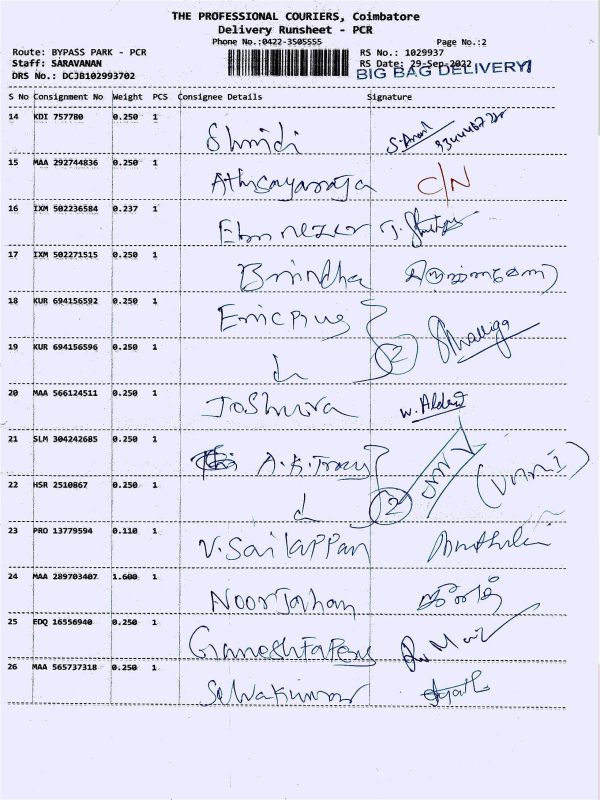 THE PROFESSIONAL COURIERS, Coimbatore
Delivery Runsheet - PCR
Phone No.:0422-3505555 Page No.:2
Route: BYPASS PARK - PCR RS No.: 1029937
Staff: SARAVANAN RS Date: 29-Sep-2022
DRS No.: DCJB102993702 BIG BAG DELIVERY
S No Consignment No Weight PCS Consignee Details Signature
14 KDI 757780 0.250 1 Shridi
15 MAA 292744836 0.250 1 Athisayaraja C/N
16 IXM 502236584 0.237 1 Ebinezer
17 IXM 502271515 0.250 1 Brindha
18 KUR 694156592 0.250 1 Ericpius
19 KUR 694156596 0.250 1 2
20 MAA 566124511 0.250 1 Joshuva
21 SLM 304242685 0.250 1 A.K.Tracy
22 HSR 2510867 0.250 1 2
23 PRO 13779594 0.110 1 V.Sailappan
24 MAA 289703407 1.600 1 Noorjahan
25 EDQ 16556940 0.250 1
26 MAA 565737318 0.250 1 Selvakumar